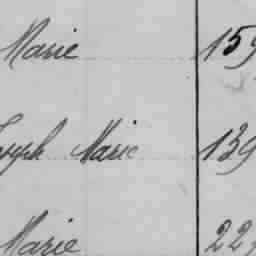 Marie 159
Joseph Marie 139
Marie 229